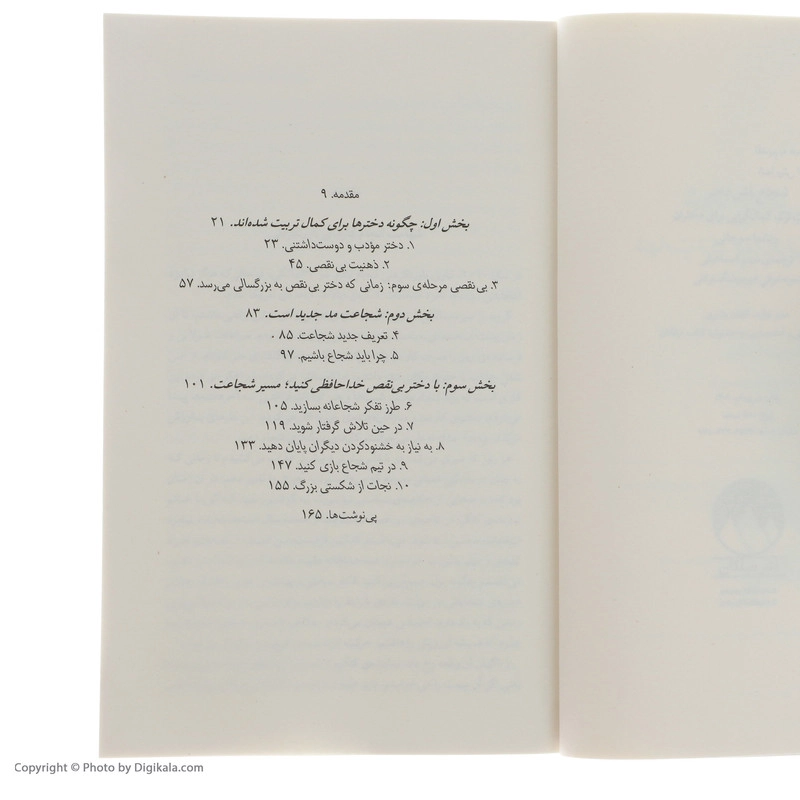 مقدمه. ۹
بخش اول: چگونه دخترها برای کمال تربیت شده‌اند. ۲۱
۱. دختر مؤدب و دوست‌داشتنی. ۲۳
۲. ذهنیت بی‌نقصی. ۴۵
۳. بی‌نقصی مرحله‌ی سوم: زمانی که دختر بی‌نقص به بزرگسالی می‌رسد. ۵۷
بخش دوم: شجاعت مد جدید است. ۸۳
۴. تعریف جدید شجاعت. ۸۵
۵. چرا باید شجاع باشیم. ۹۷
بخش سوم: با دختر بی‌نقص خداحافظی کنید؛ مسیر شجاعت. ۱۰۱
۶. طرز تفکر شجاعانه بسازید. ۱۰۵
۷. در حین تلاش گرفتار شوید. ۱۱۹
۸. به نیاز به خشنودکردن دیگران پایان دهید. ۱۳۳
۹. در تیم شجاع بازی کنید. ۱۴۷
۱۰. نجات از شکستی بزرگ. ۱۵۵
پی‌نوشت‌ها. ۱۶۵
Copyright © Photo by Digikala.com